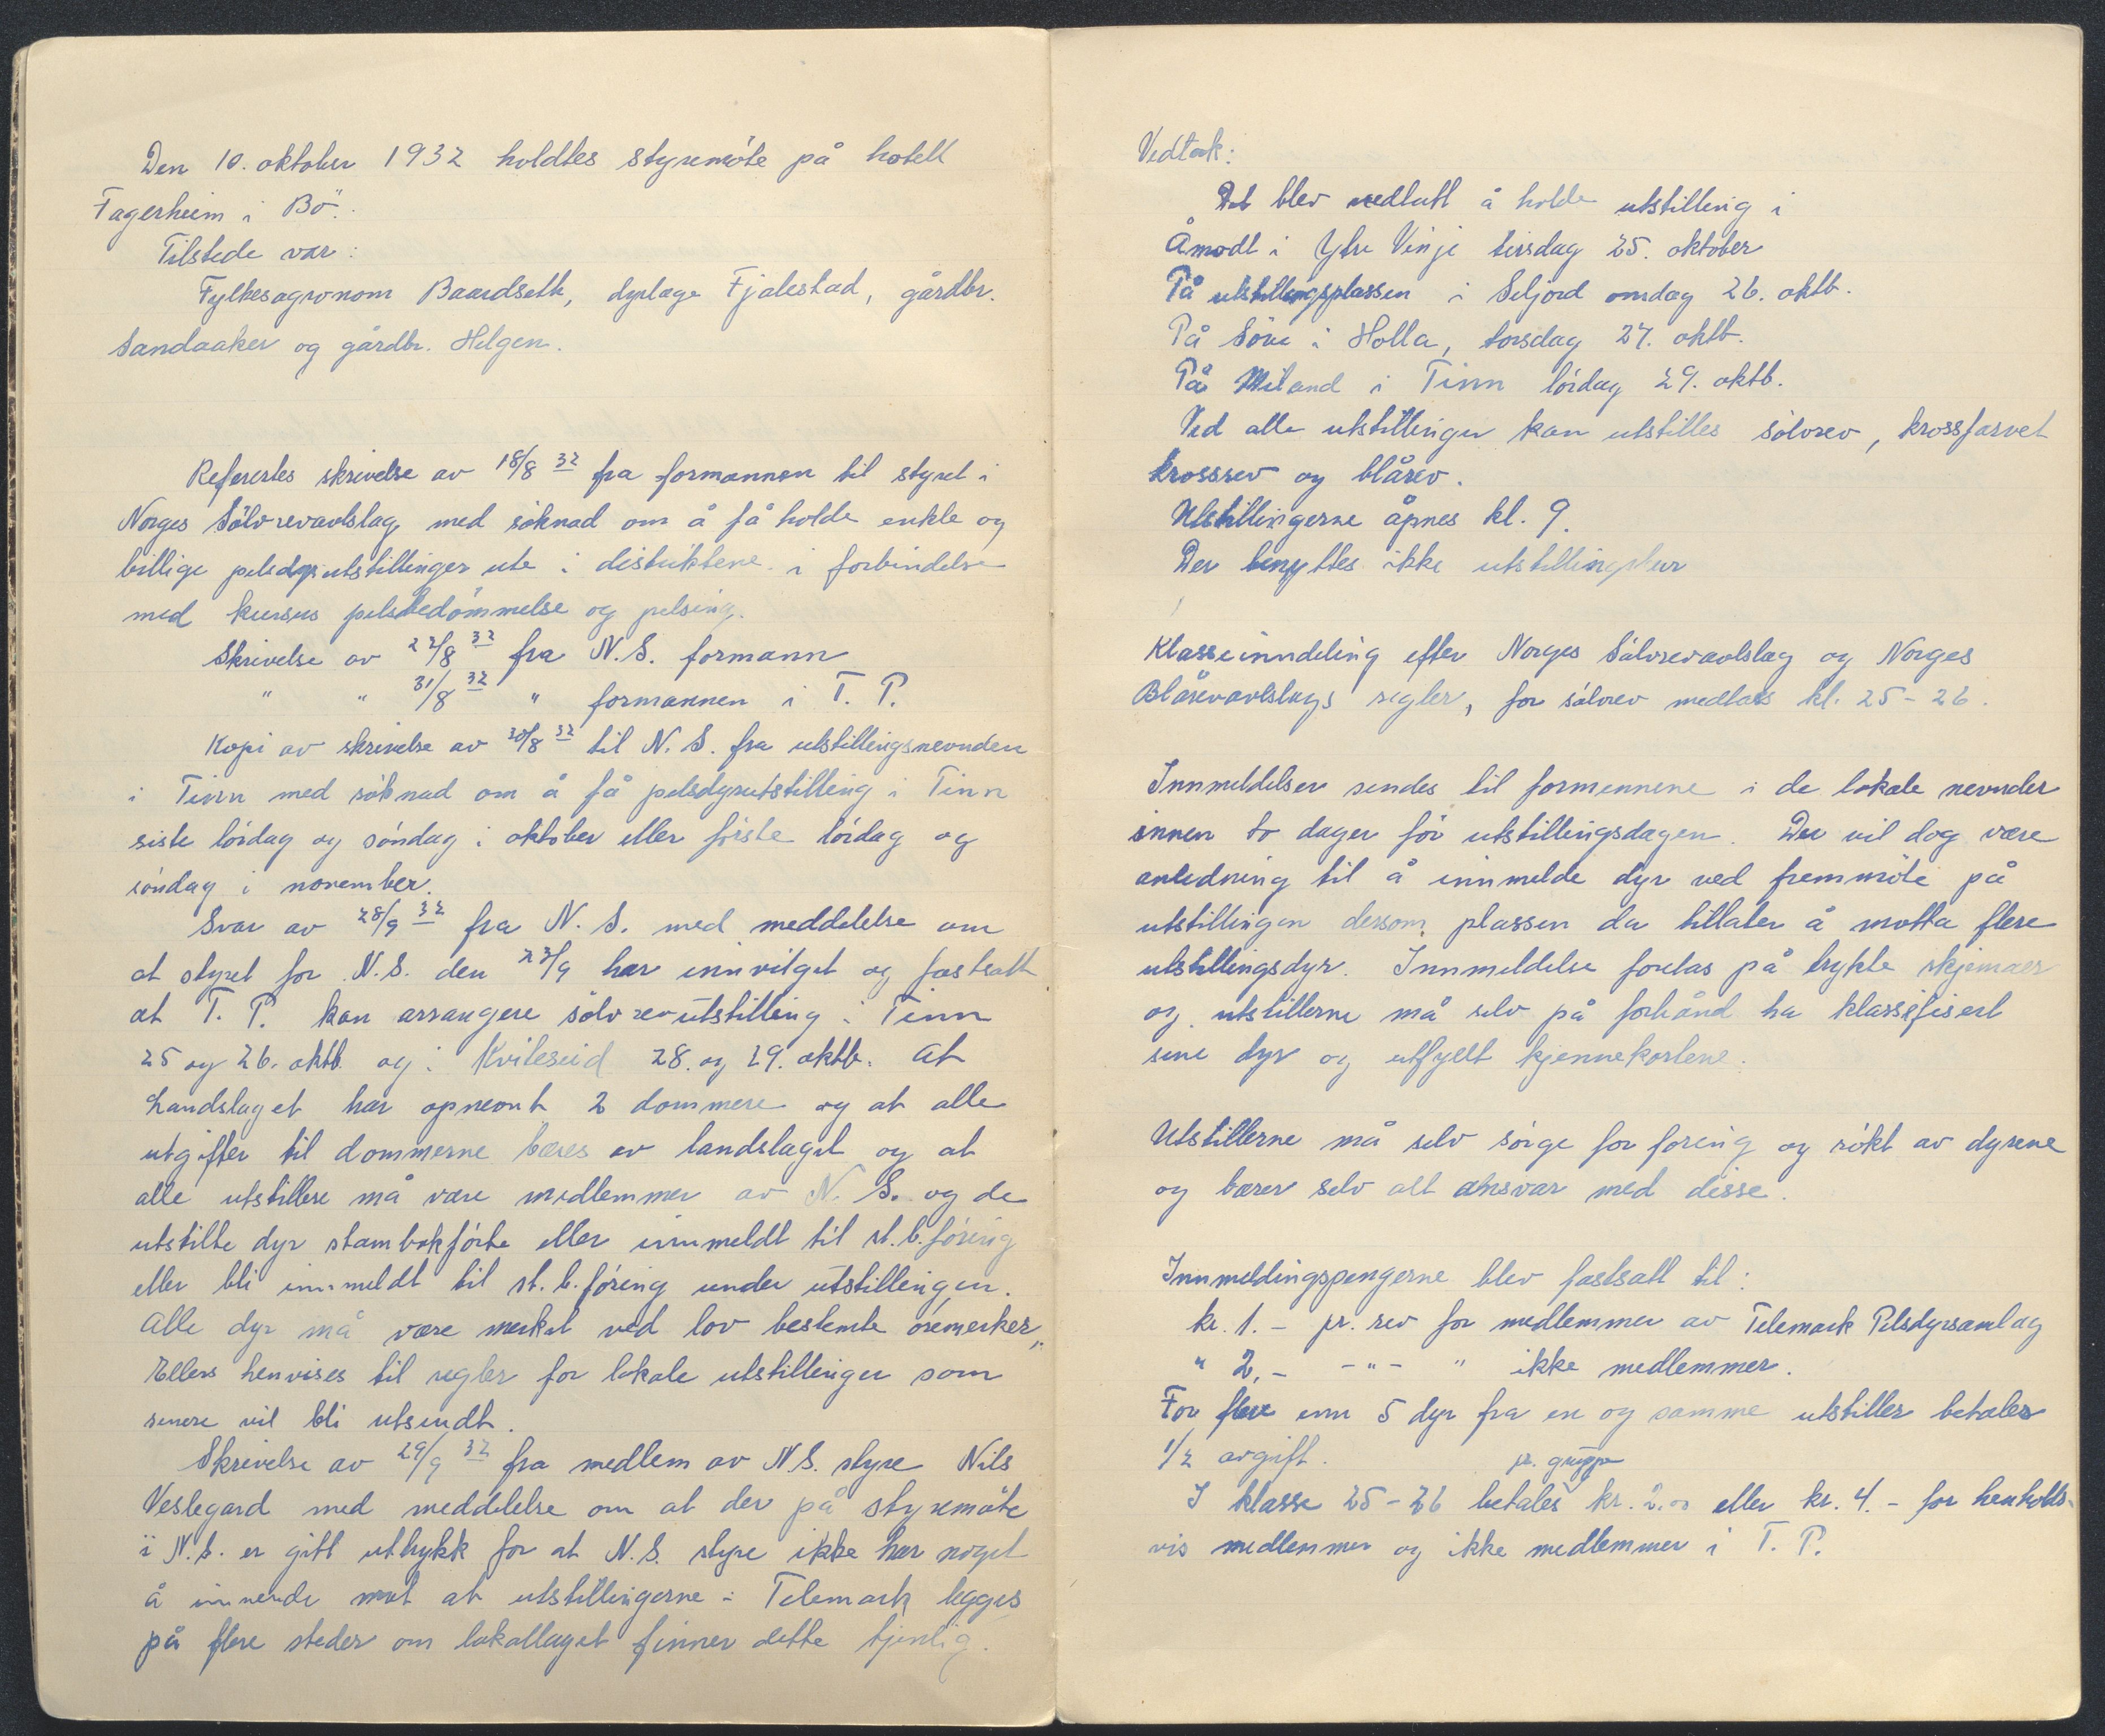 Den 10. oktober 1932 holdtes styremöte på hotell
Fagerheim i Bö.
Tilstede var:
Fylkesagronom Baardseth, dyrlæge Fjalestad, gårdbr.
Sandaaker og gårdbr. Helgen.
Refereres skrivelse av 18/8 32 fra formannen til styret i
Norges Sölvrevavlslag med söknad om å få holde enkle og
billige pelsdyrutstillinger ute i distriktene i forbindelse
med kursus pelsbedömmelse og pelsing.
Skrivelse av 22/8 32 fra N.S. formann
" " 31/8 32 " formannen i T. P.
Kopi av skrivelse av 30/8 32 til N. S. fra utstillingsnevnden
i Tinn med söknad om å få pelsdyrutstilling i Tinn
siste lördag og söndag i oktober eller förste lördag og
söndag i november.
Svar av 28/9 32 fra N. S. med meddelelse om
at styret for N.S. den 23/9 har innvilget og fastsatt
at T. P. kan arrangere sölvrevutstilling i Tinn
25 og 26. oktb. og i Kviteseid 28. og 29. oktb. At
Landslaget har opnevnt 2 dommere og at alle
utgifter til dommerne bæres av landslaget og at
alle utstillere må være medlemmer av N. S. og de
utstilte dyr stambokförte eller innmeldt til st.b.föring
eller bli innmeldt til st. b. föring under utstillingen.
Alle dyr må være merket ved lov bestemte öremerker.
Ellers henvises til regler for lokale utstillinger som
senere vil bli utsendt.
Skrivelse av 29/9 32 fra medlem av N.S. styre Nils
Veslegard med meddelelse om at der på styremöte
i N.S. er gitt uttrykk for at N.S. styre ikke har noget
å innvende mot at utstillingerne i Telemark legges
på flere steder om lokallaget finner dette tjenlig.
Vedtak:
Det blev vedtatt å holde utstilling i
Åmodt i Ytre Vinje tirsdag 25. oktober
På utstillingsplassen i Seljord onsdag 26. oktb.
På Söve i Holla, torsdag 27. oktb.
På Miland i Tinn lördag 29. oktb.
Ved alle utstillinger kan utstilles sölvrev, krossfarvet
krossrev og blårev.
Utstillingerne åpnes kl. 9.
Der benyttes ikke utstillingsbur
Klasseinndeling efter Norges Sölvrevavlslag og Norges
Blårevavlslags regler, for sölvrev medtas kl. 25-26.
Innmeldelser sendes til formennene i de lokale nevnder
innen to dager för utstillingsdagen. Der vil dog være
anledning til å innmelde dyr ved fremmöte på
utstillingen dersom plassen da tillater å motta flere
utstillingsdyr. Innmeldelse foretas på trykte skjemaer
og utstillerne må selv på forhånd ha klassifisert
sine dyr og utfyllt kjennekortene.
Utstillerne må selv sörge for foring og rökt av dyrene
og bærer selv alt ansvar med disse.
Innmeldingspengerne blev fastsatt til:
kr. 1.- pr. rev for medlemmer av Telemark Pelsdyrsamlag
" 2,- -"- " ikke medlemmer.
For flere enn 5 dyr fra en og samme utstiller betales
1/2 avgift.
pr. gruppe
I klasse 25-26 betales kr. 2.00 eller kr. 4.- for henholds-
vis medlemmer og ikke medlemmer i T. P.